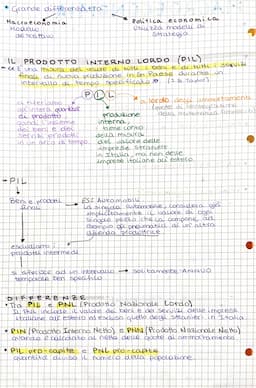 • Grande differenza tra
Macroeconomia
Modello
descrittivo
Politica economica
Utilizza modelli di
strategia
IL PRODOTTO INTERNO LORDO (PIL)
è una misura del valore di tutti i beni e di tutti i servizi
finali di nuova produzione in un Paese durante un
intervallo di tempo specificato
P I L
si riferiamo
all'intera quantità
di prodotto
quindi l'insieme
dei beni e dei
servizi prodotti
in un arco di tempo
produzione
interna
tiene conto
della misura
del valore delle
imprese straniere
in Italia, ma non delle
imprese italiane all'estero
a lordo degli ammortamenti
• PIL
Beni e prodotti
finali
ES: Automobili
La singola automobile, considera già
implicitamente il valore di ogni
singolo pezzo che la compone, ad
esempio gli pneumatici di un'altra
azienda produttrice
escludiamo i
prodotti intermedi
si riferisce ad un intervallo
temporale ben specifico
solitamente ANNUO
DIFFERENZE
• Tra PIL e PNL (Prodotto Nazionale Lordo)
Il PNL include il valore dei beni e dei servizi delle imprese
italiane all'estero ed esclude quello degli stranieri in Italia
• PIN (Prodotto Interno Netto) e PNN (Prodotto Nazionale Netto)
quando è calcolato al netto delle quote di ammortamento
• PIL pro-capite e PNL pro-capite
quando diviso il numero della popolazione.